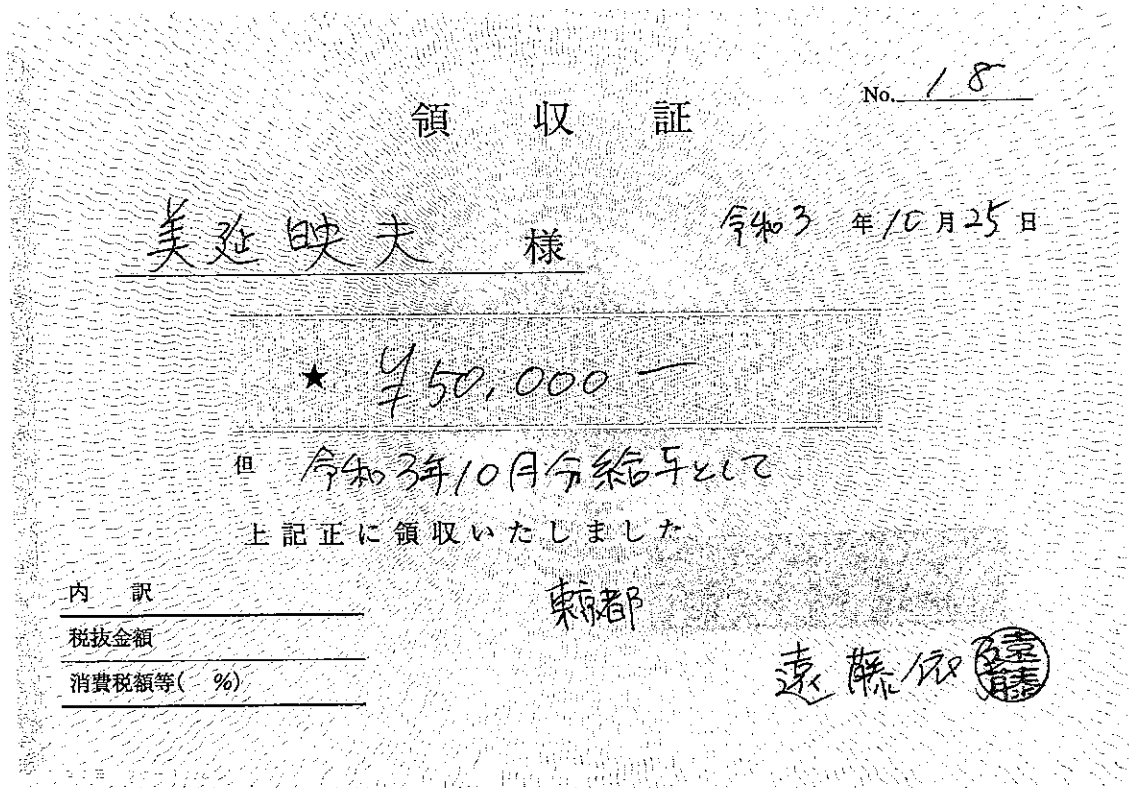 No. 18
領収証
美延映夫 様
令和3年10月25日
★ ¥50,000ー
但 令和3年10月分給与として
上記正に領収いたしました
内訳
税抜金額
消費税額等( %)
東京都
遠藤依
遠藤